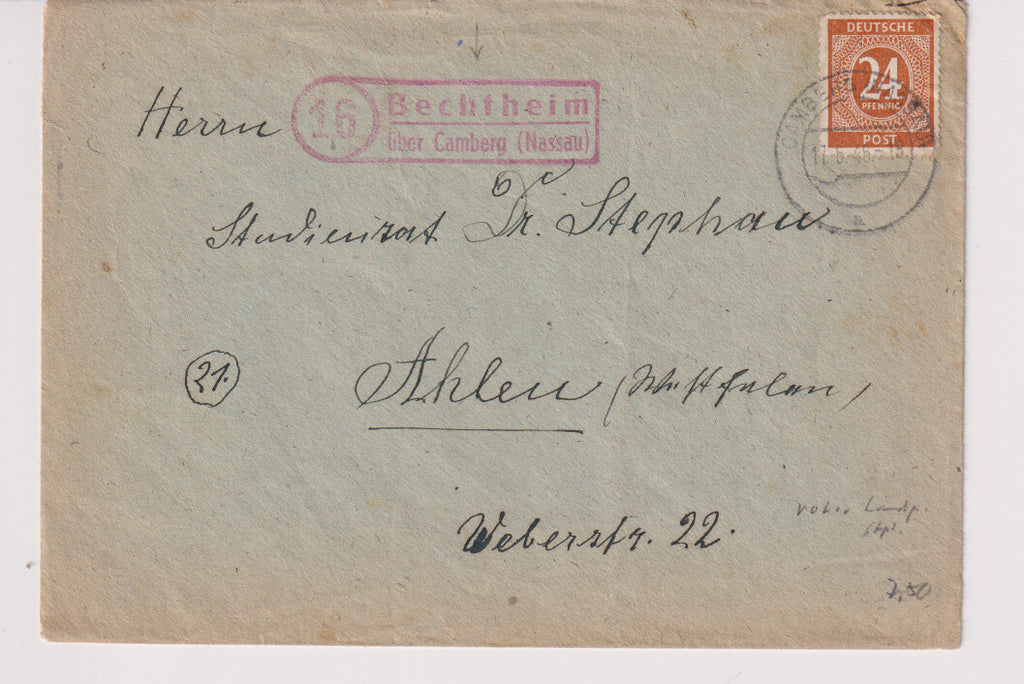 DEUTSCHE
24
PFENNIG
POST
16
Bechtheim
über Camberg (Nassau)
Herrn
Studienrat Dr. Stephan
21.
Ahlen (Westfalen)
Weberstr. 22.
roter Landp.
Stpl
7,50